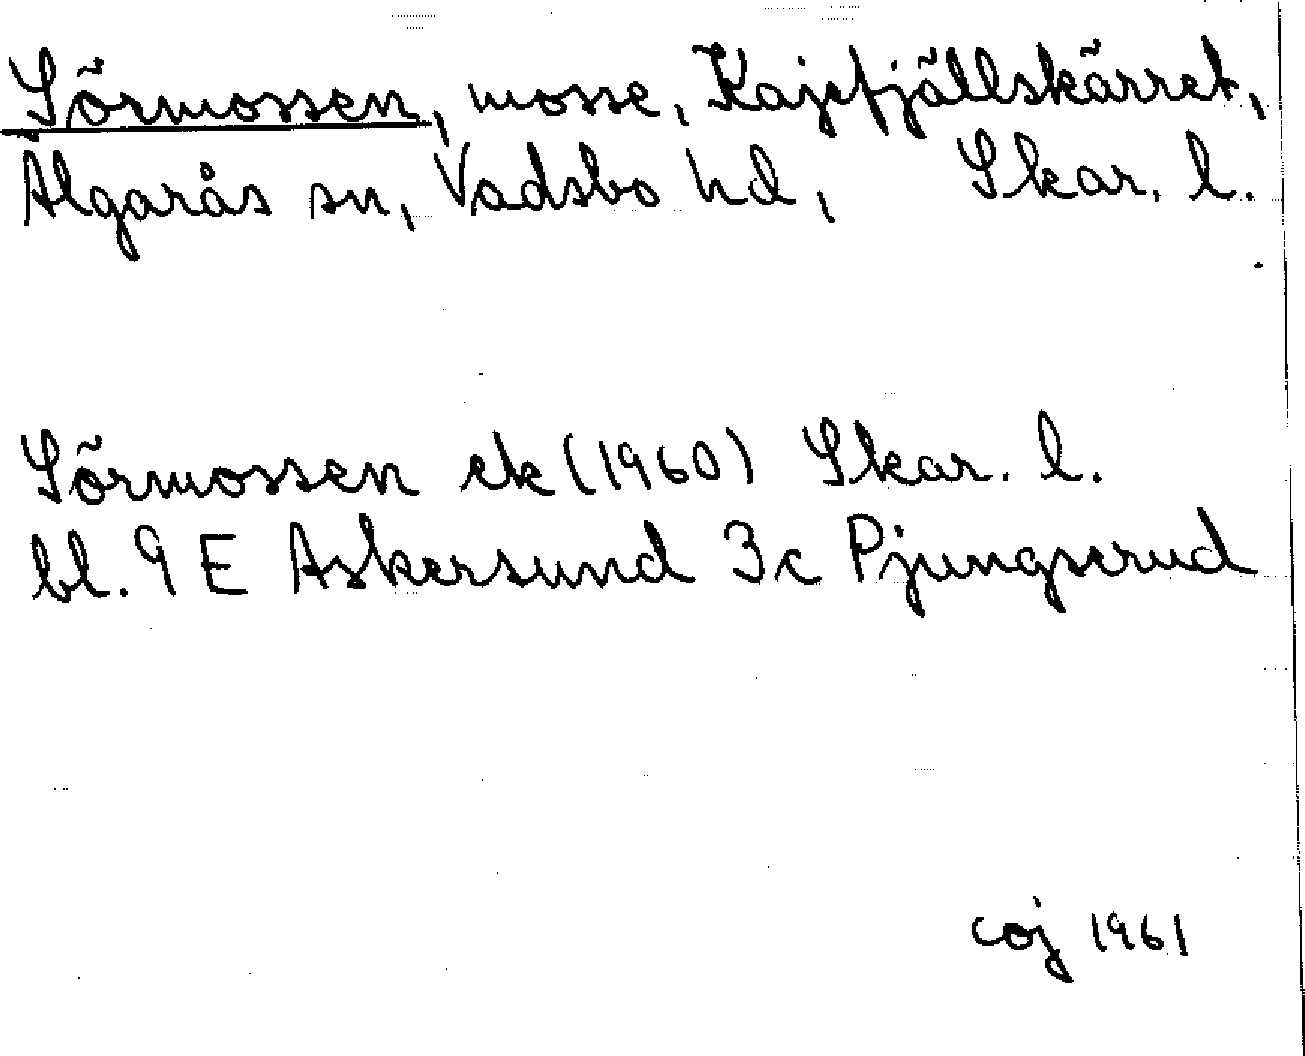 Sörmossen, mosse, Kajefjällskärret,
Älgarås sn, Vadsbo hd, Skar. l.
Sörmossen ek (1960) Skar. l.
bl. 9 E Askersund 3c Pjungserud
coj 1961